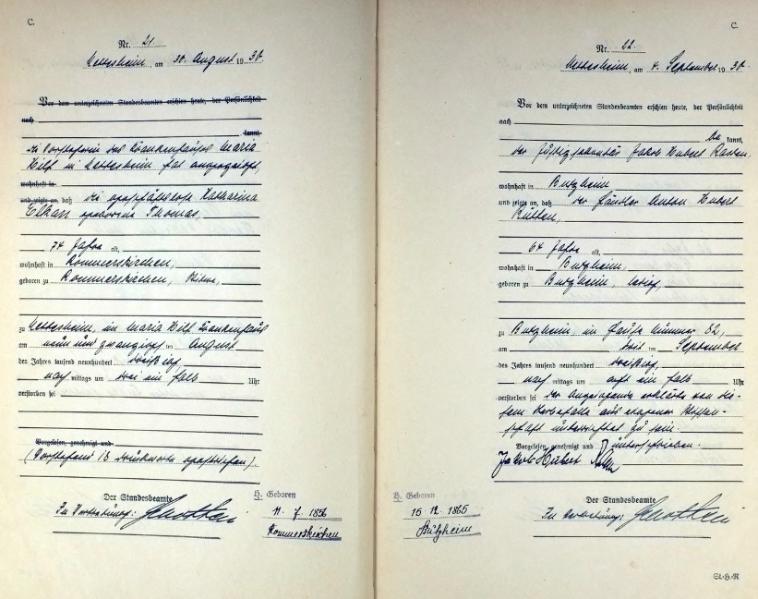 C.
Nr. 21
Nettesheim, am 30. August 1930.
Vor dem unterzeichneten Standesbeamten erschien heute, der Persönlichkeit
nach
kannt,
die Vorsteherin des Krankenhauses Maria
Hilf in Nettesheim hat angezeigt,
wohnhaft in
und zeigte an, daß die geschäftslose Katharina
Elkan geborene Thomas,
74 Jahre alt,
wohnhaft in Rommerskirchen,
geboren zu Rommerskirchen, Witwe,
zu Nettesheim, im Maria Hilf Krankenhaus
am neun und zwanzigsten August
des Jahres tausend neunhundert dreißig,
nach mittags um drei ein halb Uhr
verstorben sei
Vorgelesen, genehmigt und
(Vorstehend 18 Druckworte gestrichen).
Der Standesbeamte
In Vertretung:
H. Geboren
11. 7. 1856
Rommerskirchen
C.
Nr. 22.
Nettesheim, am 4. September 1930.
Vor dem unterzeichneten Standesbeamten erschien heute, der Persönlichkeit
nach
be kannt,
der Justizsekretär Jakob Hubert
wohnhaft in Butzheim
und zeigte an, daß der Händler Anton Hubert
Rütten,
64 Jahre alt,
wohnhaft in Butzheim,
geboren zu Butzheim, ledig,
zu Butzheim, im Hause Nummer 82,
am September
des Jahres tausend neunhundert dreißig,
nach mittags um acht ein halb Uhr
verstorben sei Der Anzeigende erklärte von die-
sem Sterbefalle aus eigener Wissen-
schaft unterrichtet zu sein.
Vorgelesen, genehmigt und unterschrieben.
Jakob Hubert
Der Standesbeamte
In Vertretung:
H. Geboren
15. 12. 1865
Butzheim
St.-H.-R